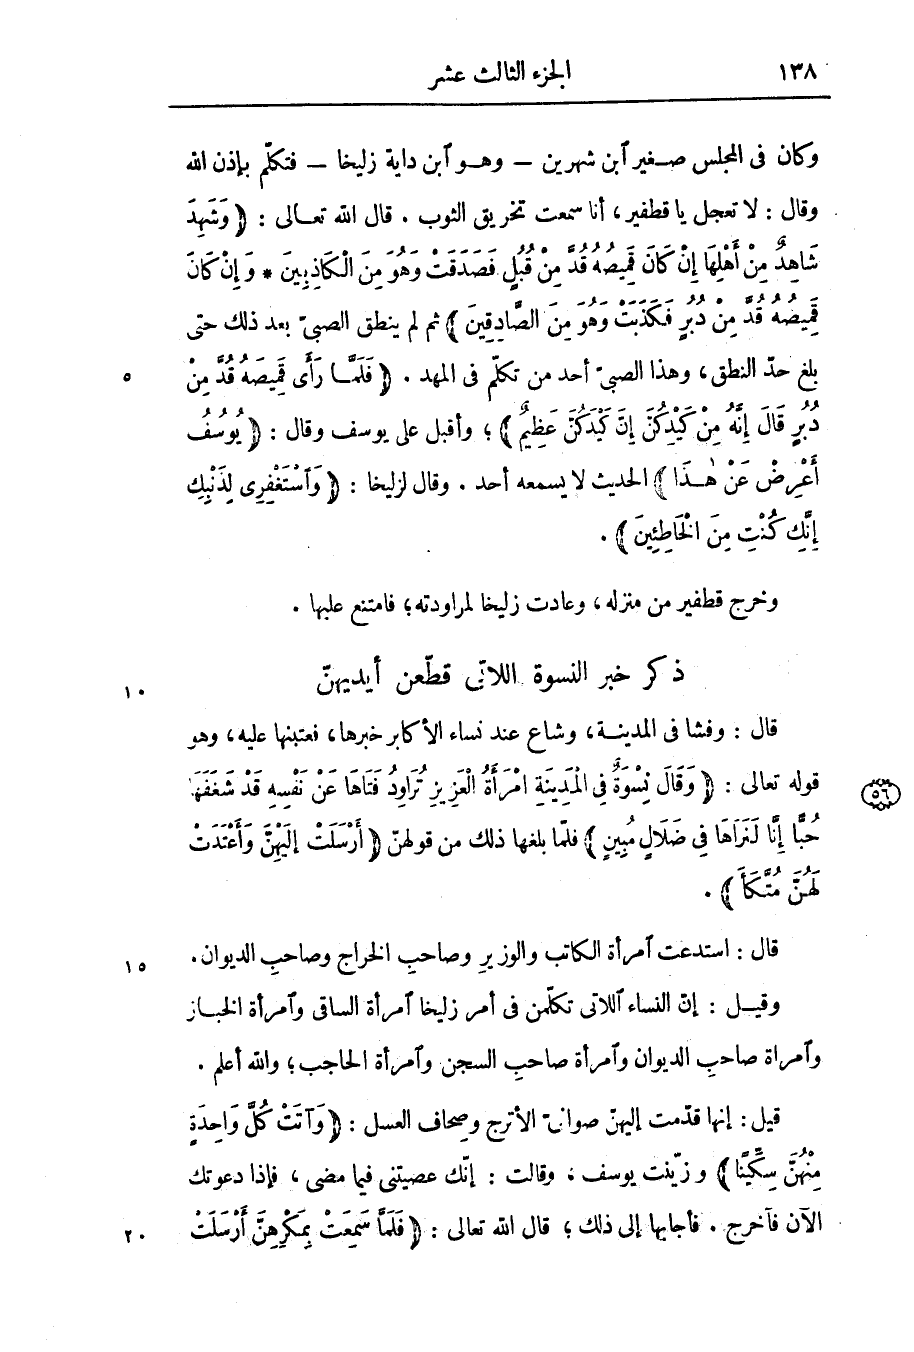 ١٣٨ الجزء الثالث عشر
وكان فى المجلس صغير ٱبن شهرين – وهو ٱبن داية زليخا – فتكلّم بإذن الله
وقال : لا تعجل يا قطفير ، أنا سمعت تخريق الثوب . قال الله تعالى : ﴿ وَشَهِدَ
شَاهِدٌ مِنْ أَهْلِهَا إِنْ كَانَ قَمِيصُهُ قُدَّ مِنْ قُبُلٍ فَصَدَقَتْ وَهُوَ مِنَ الْكَاذِبِينَ * وَإِنْ كَانَ
قَمِيصُهُ قُدَّ مِنْ دُبُرٍ فَكَذَبَتْ وَهُوَ مِنَ الصَّادِقِينَ ﴾ ثم لم ينطق الصبىّ بعد ذلك حتى
بلغ حدّ النطق ، وهذا الصبىّ أحد من تكلّم فى المهد . ﴿ فَلَمَّا رَأَى قَمِيصَهُ قُدَّ مِنْ ٥
دُبُرٍ قَالَ إِنَّهُ مِنْ كَيْدِكُنَّ إِنَّ كَيْدَكُنَّ عَظِيمٌ ﴾ ؛ وأقبل على يوسف وقال : ﴿ يُوسُفُ
أَعْرِضْ عَنْ هٰذَا ﴾ الحديث لا يسمعه أحد . وقال لزليخا : ﴿ وَٱسْتَغْفِرِى لِذَنْبِكِ
إِنَّكِ كُنْتِ مِنَ الْخَاطِئِينَ ﴾ .
وخرج قطفير من منزله ، وعادت زليخا لمراودته ؛ فامتنع عليها .
ذكر خبر النسوة اللاتى قطّعن أيديهنّ ١٠
قال : وفشا فى المدينة ، وشاع عند نساء الأكابر خبرها ، فعتبنها عليه ، وهو
قوله تعالى : ﴿ وَقَالَ نِسْوَةٌ فِى الْمَدِينَةِ امْرَأَةُ الْعَزِيزِ تُرَاوِدُ فَتَاهَا عَنْ نَفْسِهِ قَدْ شَغَفَهَا ٥٦
حُبًّا إِنَّا لَنَرَاهَا فِى ضَلَالٍ مُبِينٍ ﴾ فلمّا بلغها ذلك من قولهنّ ﴿ أَرْسَلَتْ إِلَيْهِنَّ وَأَعْتَدَتْ
لَهُنَّ مُتَّكَأً ﴾ .
قال : استدعت ٱمرأة الكاتب والوزير وصاحب الخراج وصاحب الديوان . ١٥
وقيل : إنّ النساء ٱللاتى تكلّمن فى أمر زليخا ٱمرأة الساقى وٱمرأة الخباز
وٱمراة صاحب الديوان وٱمرأة صاحب السجن وٱمرأة الحاجب ؛ والله أعلم .
قيل : إنها قدّمت إليهنّ صوانىّ الأترج وصحاف العسل : ﴿ وَآتَتْ كُلَّ وَاحِدَةٍ
مِنْهُنَّ سِكِّينًا ﴾ وزيّنت يوسف ، وقالت : إنّك عصيتنى فيما مضى ، فإذا دعوتك
الآن فٱخرج . فأجابها إلى ذلك ؛ قال الله تعالى : ﴿ فَلَمَّا سَمِعَتْ بِمَكْرِهِنَّ أَرْسَلَتْ ٢٠